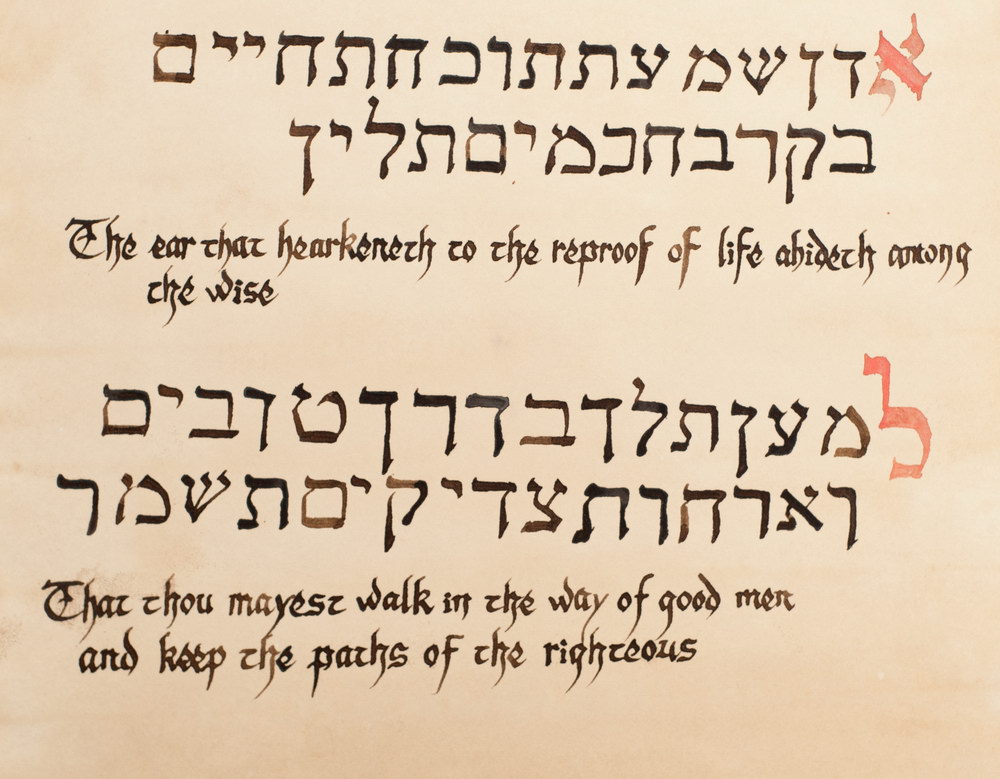 אדןשמעתתוכחתחיים
בקרבחכמיםתלין
The ear that hearkeneth to the reproof of life abideth among
the wise
למעןתלךבדרךטובים
וארחותצדיקיםתשמר
That thou mayest walk in the way of good men
and keep the paths of the righteous